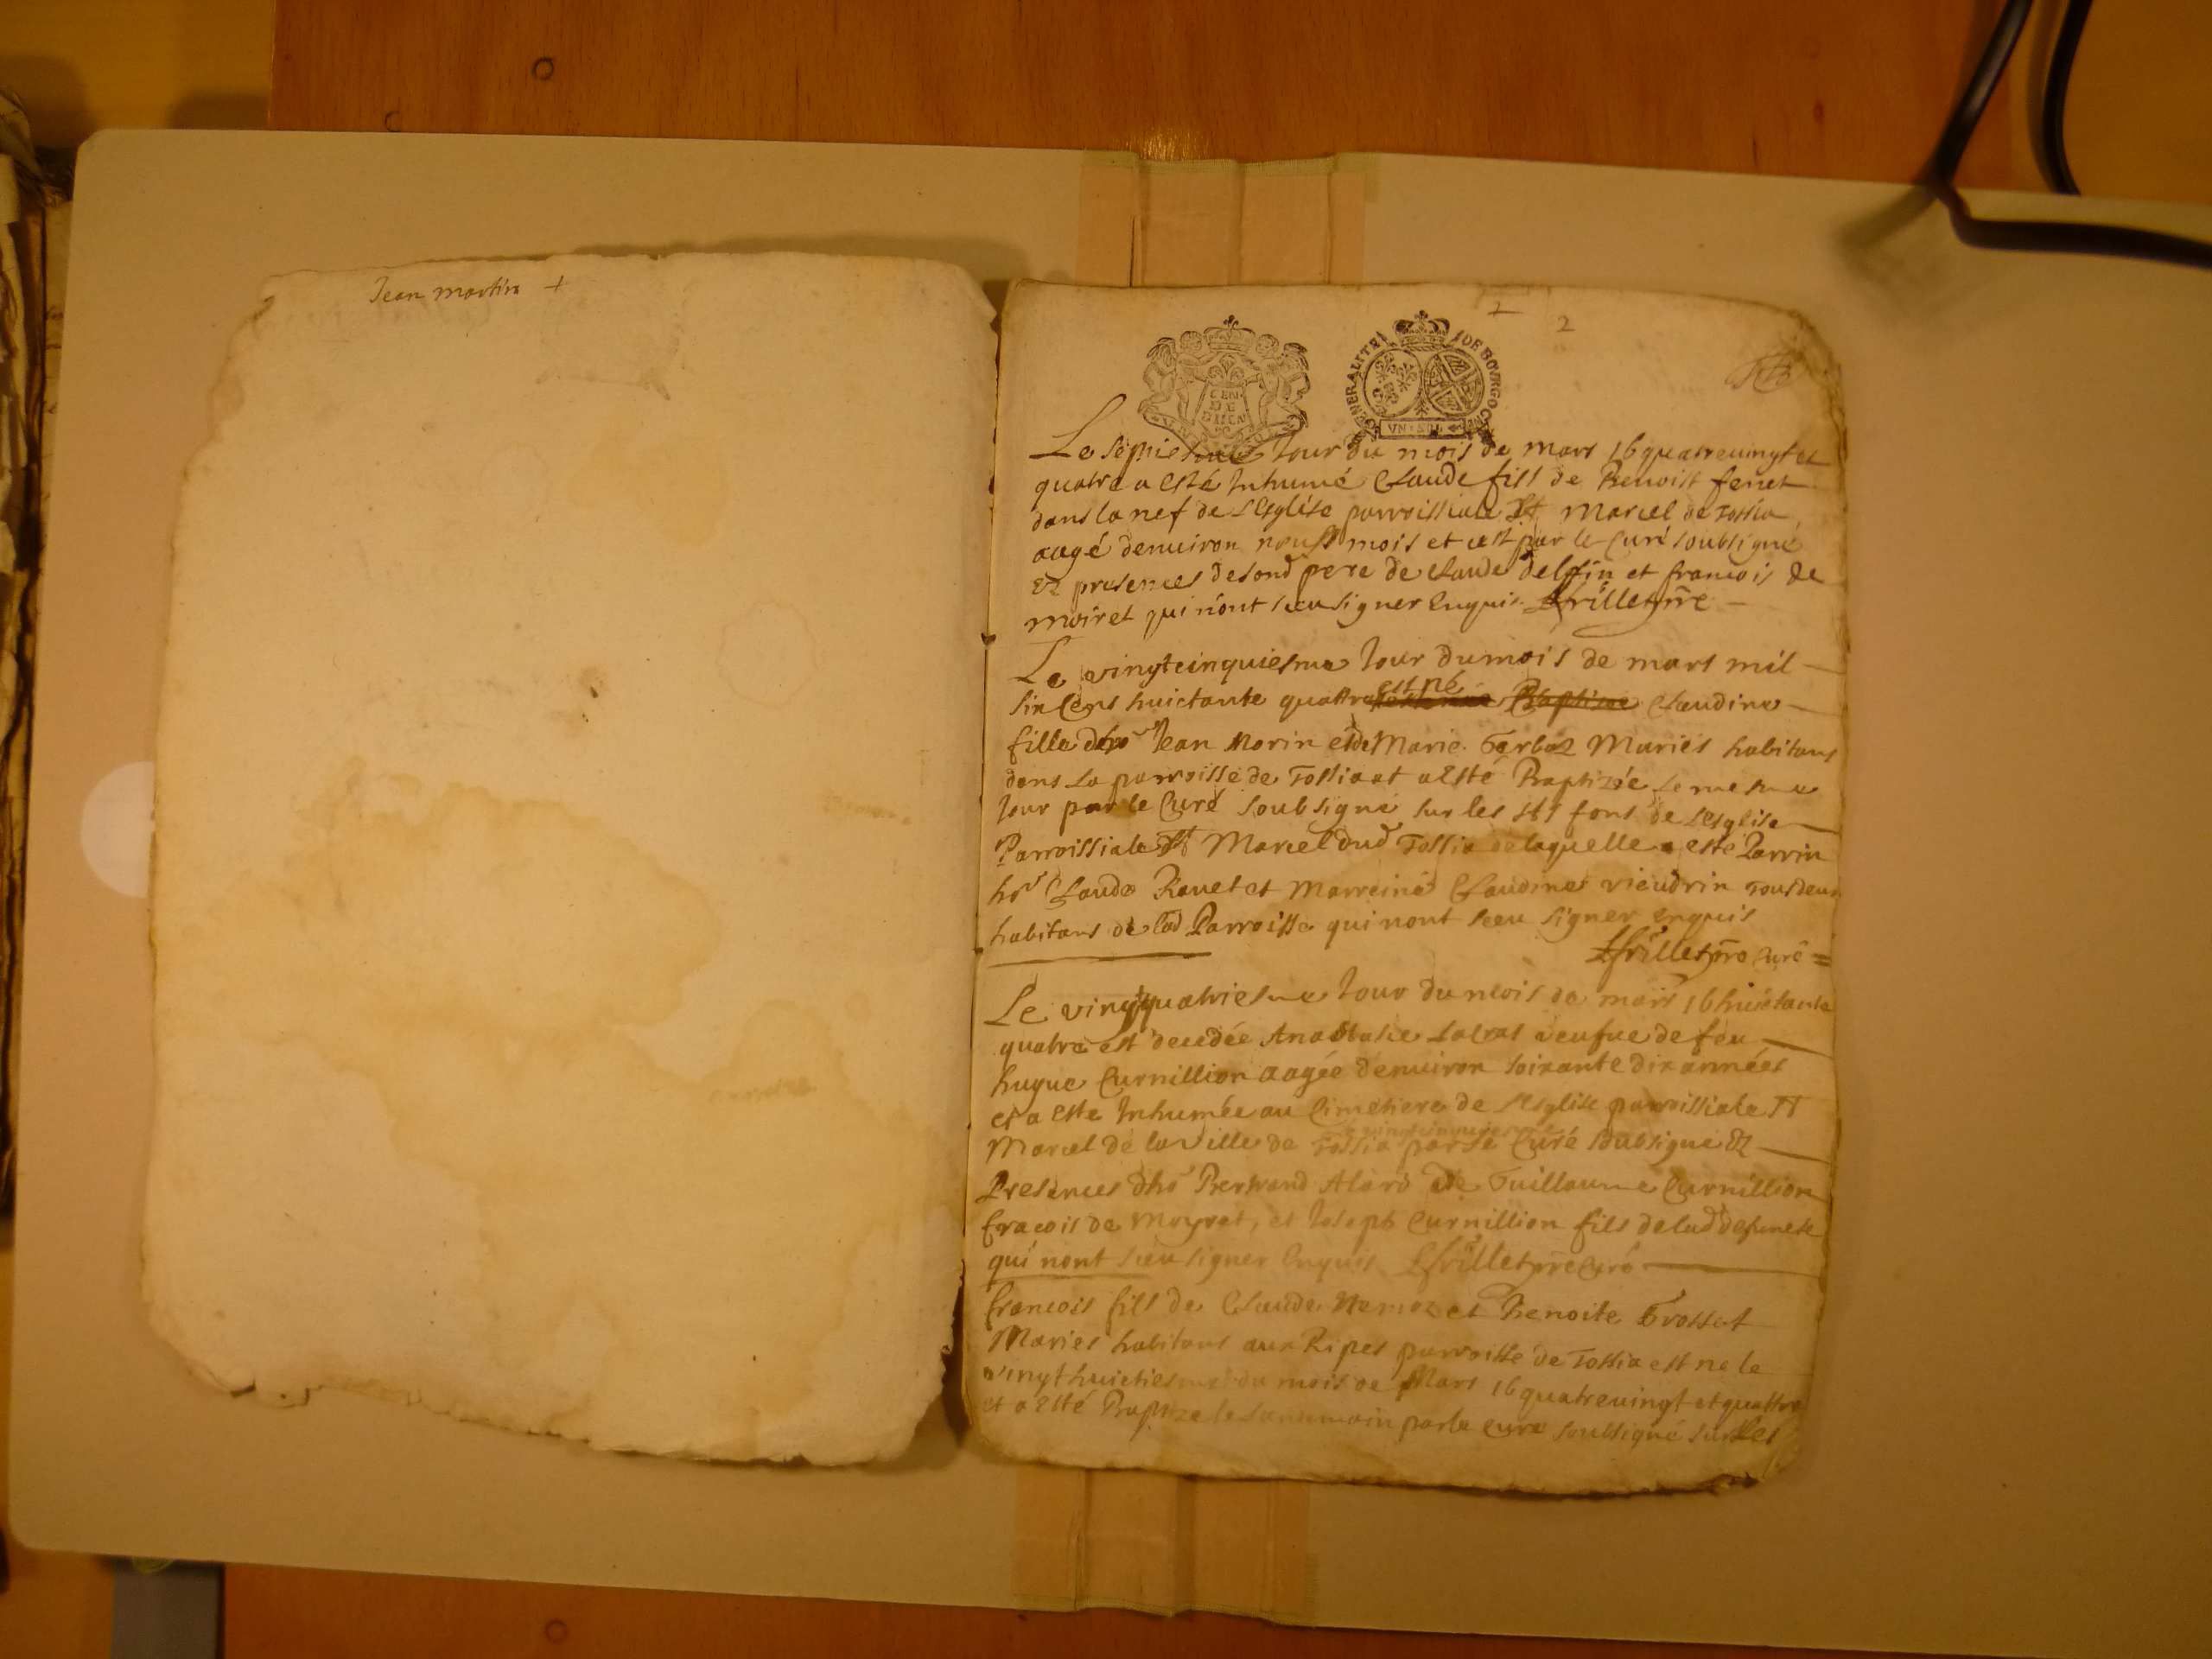 Jean martin +
2
GENERALITE DE BOURGOGNE
GEN DE DIION
VN SOL
Le Septiesme Jour du mois de mars 16 quatrevingt et
quatre a esté Inhumé Claude fils de Benoist feret
dans la nef de l'Esglise parroissiale St Marcel de Tossia
aagé denuiron neuf mois et cest par le Curé soubsigné
Et presences desond pere de Claude delfin et francois de
moiret qui n'ont sceu signer Enquis frillet pre
Le vingtcinquiesme Jour du mois de mars mil
six Cens huictante quattre est né Baptisee Claudine
fille dho Jean Morin et de Marie Mariés habitans
dans la parroisse de Tossia et a Esté Baptizée le mesme
Jour par le Curé soubsigné sur les sts fons de l'esglise
Parroissiale St Marcel dud Tossia de laquelle a esté Parrin
ho Claude Ravet et Marreine Claudine vieudrin Tous deux
habitans de lad Parroisse qui nont sceu signer Enquis
frillet pre Curé =
Le vingtquatriesme Jour du mois de mars 16 huictante
quatre est decedée Anastasie veufue de feu
hugue Curnillion aagée denuiron soixante dix années
et a Este Inhumée au Cimetiere de l'Esglise parroissiale St
Marcel de la Ville de Tossia par le Curé soubsigné Et
Presences dho Bertrand Alard de Guillaume Curnillion
fracois de Moyret, et Joseph Curnillion fils de lad defuncte
qui nont sceu signer Enquis frillet pre Curé
francois fils de Claude et Benoite Grosset
Mariés habitans aux Ripes parroisse de Tossia est ne le
vingt huictiesme du mois de Mars 16 quatrevingt et quattre
et a Esté Baptize le landemain par le Curé soubsigné sur les